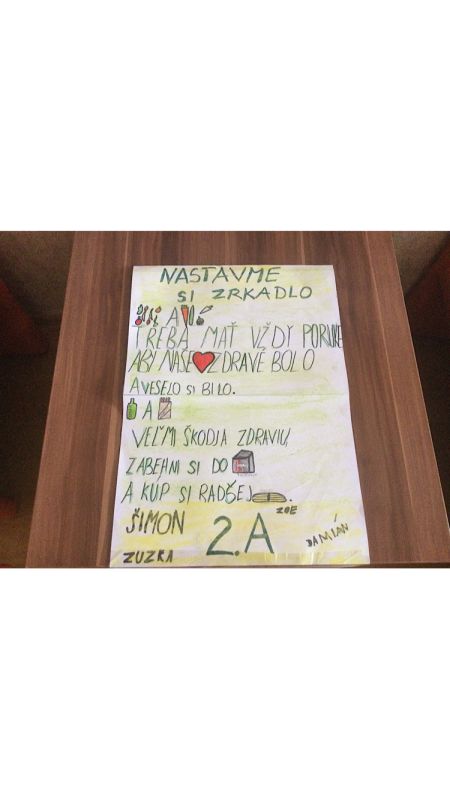 NASTAVME
SI ZRKADLO
A
TREBA MAŤ VŽDY PORUKE
ABY NAŠE ZDRAVÉ BOLO
A VESELO SI BILO.
A
VEĽMI ŠKODIA ZDRAVIU,
ZABEHNI SI DO
A KÚP SI RADŠEJ .
ZOE
ŠIMON
2.A
DAMIÁN
ZUZKA